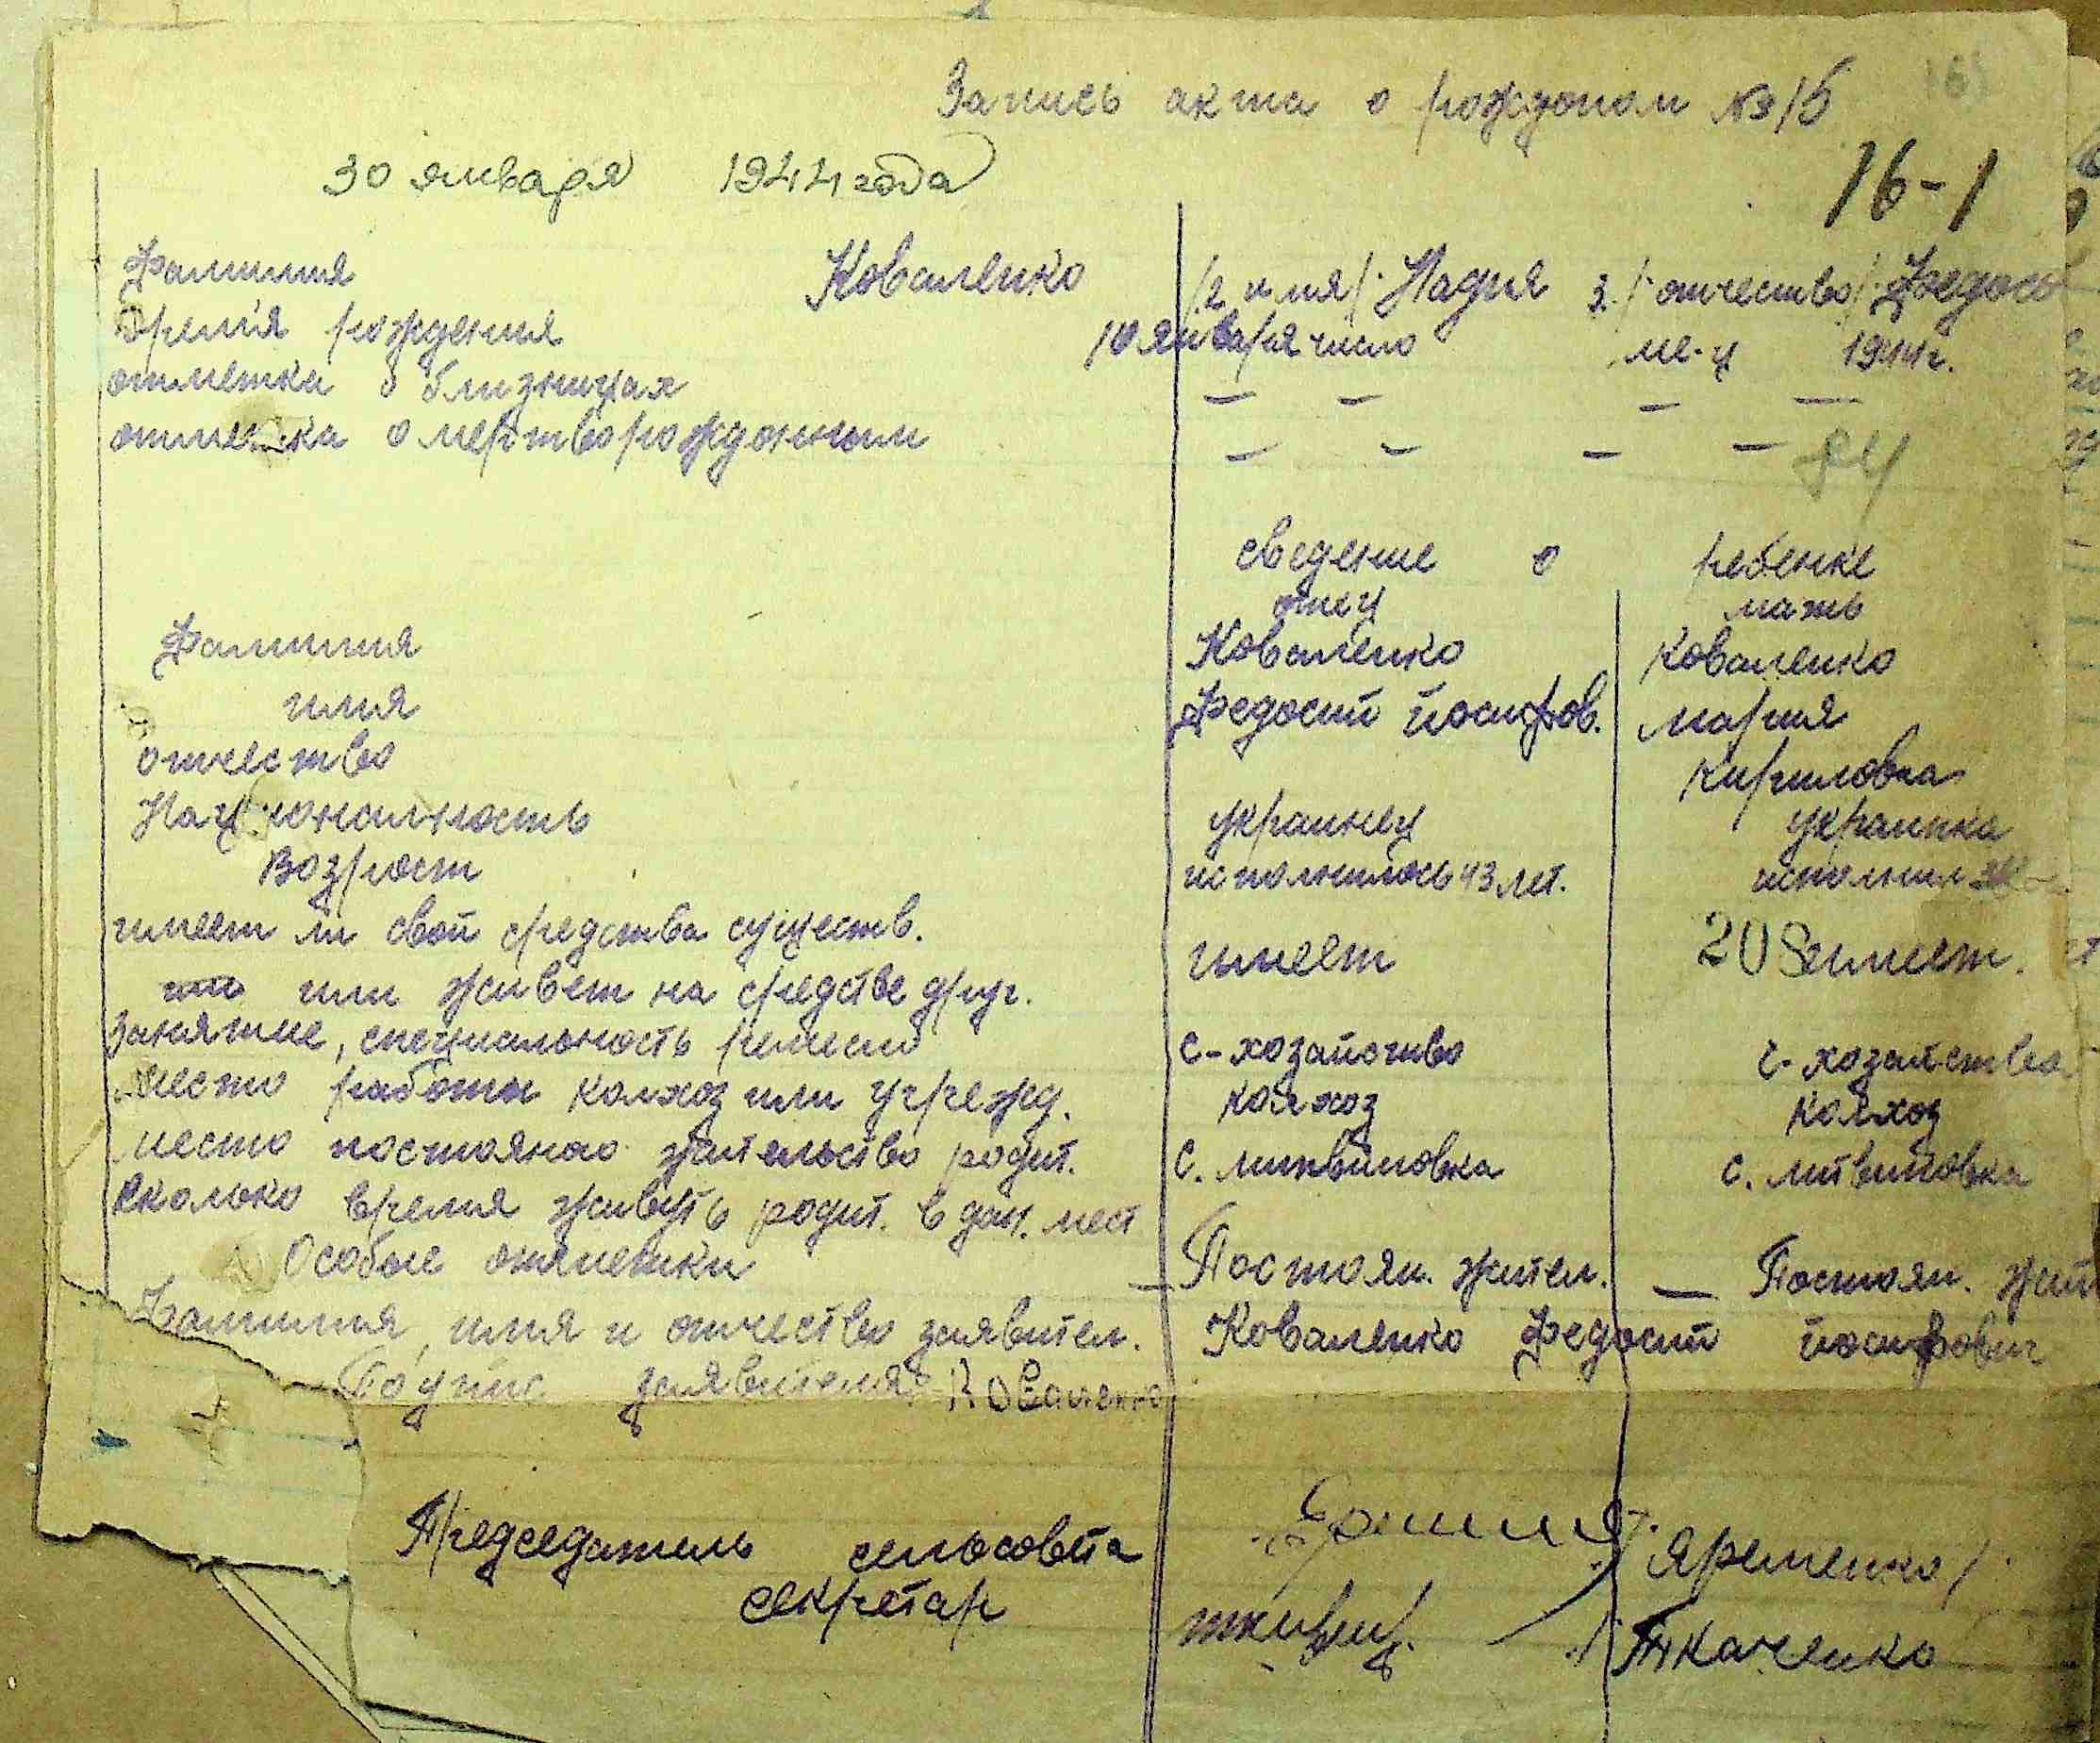 Запись акта о рождоном №15
30 января 1944 года
16-1
Фамилия Коваленко /2 имя/ Надия 3. /отчество/ Федось
Время рождения 10 января число ме-ц 1944г.
отметка о близницах — — — —
отметка о мертворождонным — — — —
84
сведение о ребенке
отец мать
Фамилия Коваленко Коваленко
имя Федосий Йосифов. Мария
отчество Кириловна
Национальность украинец украинка
Возрост исполнилось 43 лет. исполнил
имеет ли свои средства существ. имеет имеет.
или живет на средстве друг.
Занятие, специальность ремесло с-хозайство с-хозайство
место работы колхоз или учрежд. колхоз колхоз
место постояного жительство родит. с. литвиновка с. литвиновка
Сколько время живуть родит. в дан. мест
Особые отметки — Постоян. жител. — Постоян. жит
Фамилия, имя и отчество заявител. Коваленко Федосий Йосифович
Подпис заявителя Коваленко
Председатель сельсовета Яременко/
Секретар /Ткаченко